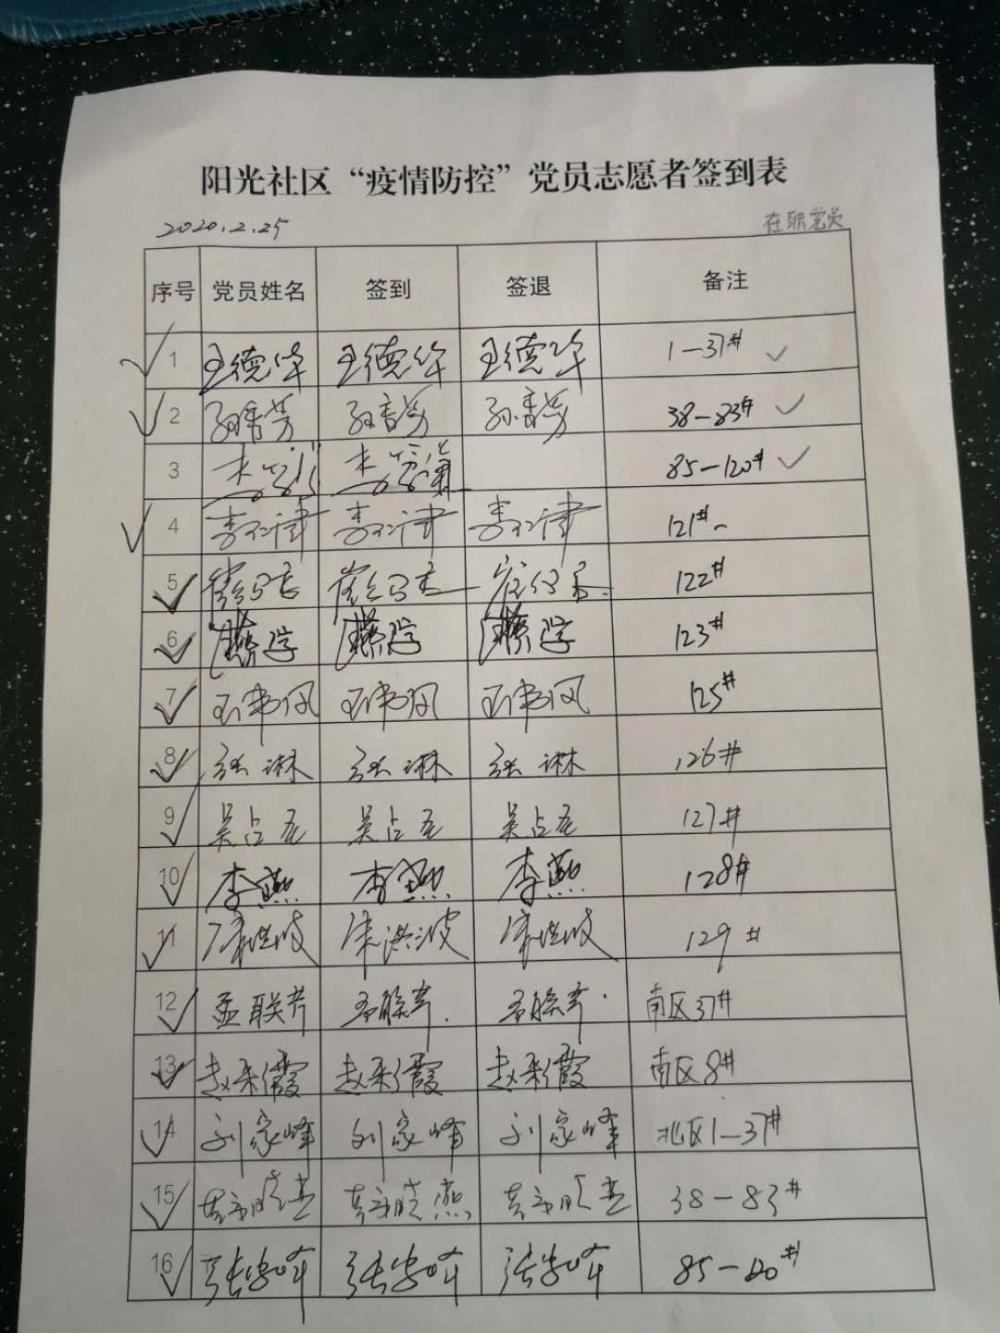 阳光社区“疫情防控”党员志愿者签到表
2020.2.25 在职党员
序号 党员姓名 签到 签退 备注
1 王德华 王德华 王德华 1-37#
2 孙秀芳 孙秀芳 孙秀芳 38-83#
3 85-120#
4 李仁津 李仁津 李仁津 121#
5 122#
6 123#
7 125#
8 张琳 张琳 张琳 126#
9 吴占 吴占 吴占 127#
10 李燕 李燕 李燕 128#
11 宋洪波 宋洪波 宋洪波 129#
12 孟联芳 孟联芳 孟联芳 南区37#
13 赵彩霞 赵彩霞 赵彩霞 南区8#
14 刘家峰 刘家峰 刘家峰 北区1-37#
15 38-83#
16 85-120#